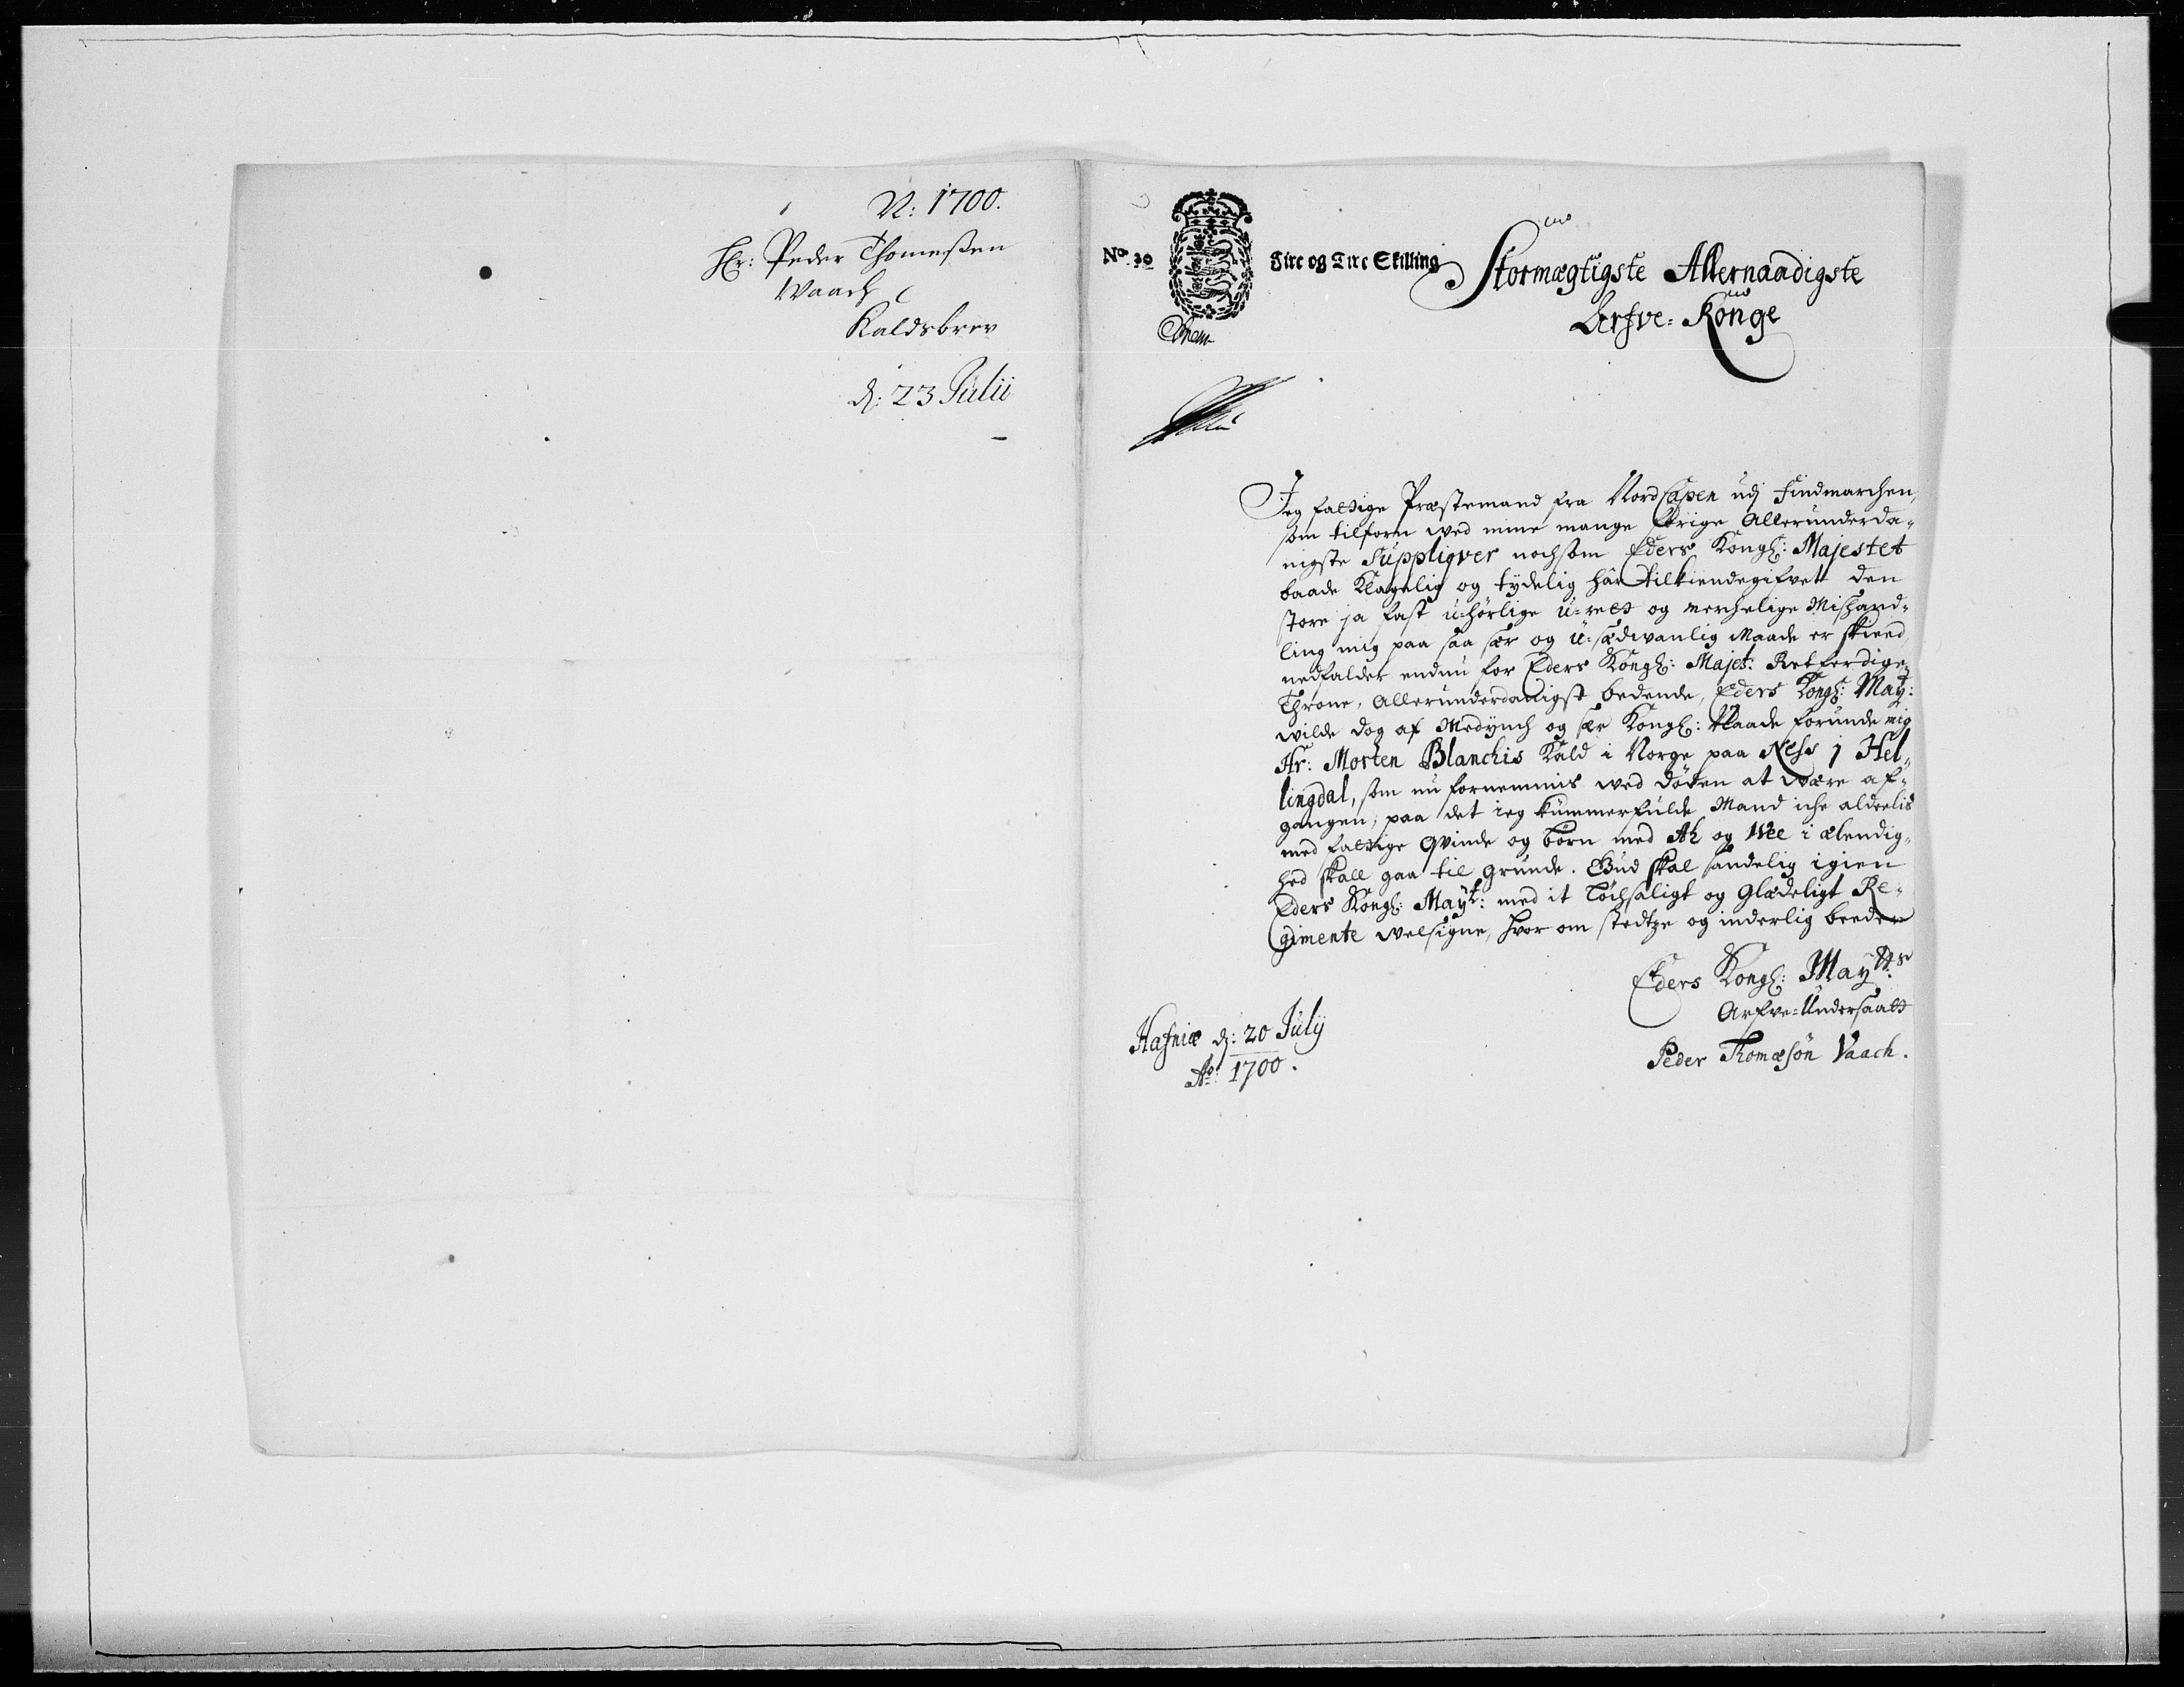 N: 1700.
Hr: Peder Thomeßen
Waach
Kaldsbrev
d: 23 Julii
No 30
Fire og Tive Skilling
Stormægtigste Allernaadigste
Arfve-Konge
Jeg fattige Præstemand fra NordCapen udj Findmarchen,
som tilforn wed mine mange forige Allerunderda-
nigste Suppliqver nochsom Eders Kongl: Majestet
baade Klagelig og tydelig hâr tilkiendegifvett den
store ja fast u-hørlige u-rett og merchelige Mishand-
ling mig paa saa sær og u-sædvanlig Maade er skeed,
nedfalder endnu for Eders Kongl: Majet: Retferdige
Throne, Allerunderdanigst bedende, Eders Kongl: Mayt:
wilde dog af Medynch og sær Kongl: Naade forunde mig
Hr: Morten Blanchis Kald i Norge paa Ness j Hel-
lingdal, som nu fornemmis wed døden at were af-
gangen; paa det ieg kummerfulde Mand iche aldeelis
med fattige Qvinde og børn med Ah og Wee i ælendig-
hed skall gaa til grunde. Gud skal sandelig igien
Eders Kongl: Mayt: med it Løchsaligt og Glædeligt Re-
gimente welsigne, hvor om stedtze og inderlig beeder
Eders Kongl: Maytts
Arfve-Undersaatt
Peder Thomæsøn Vaach.
Hafniæ d: 20 Julij
Ao: 1700.